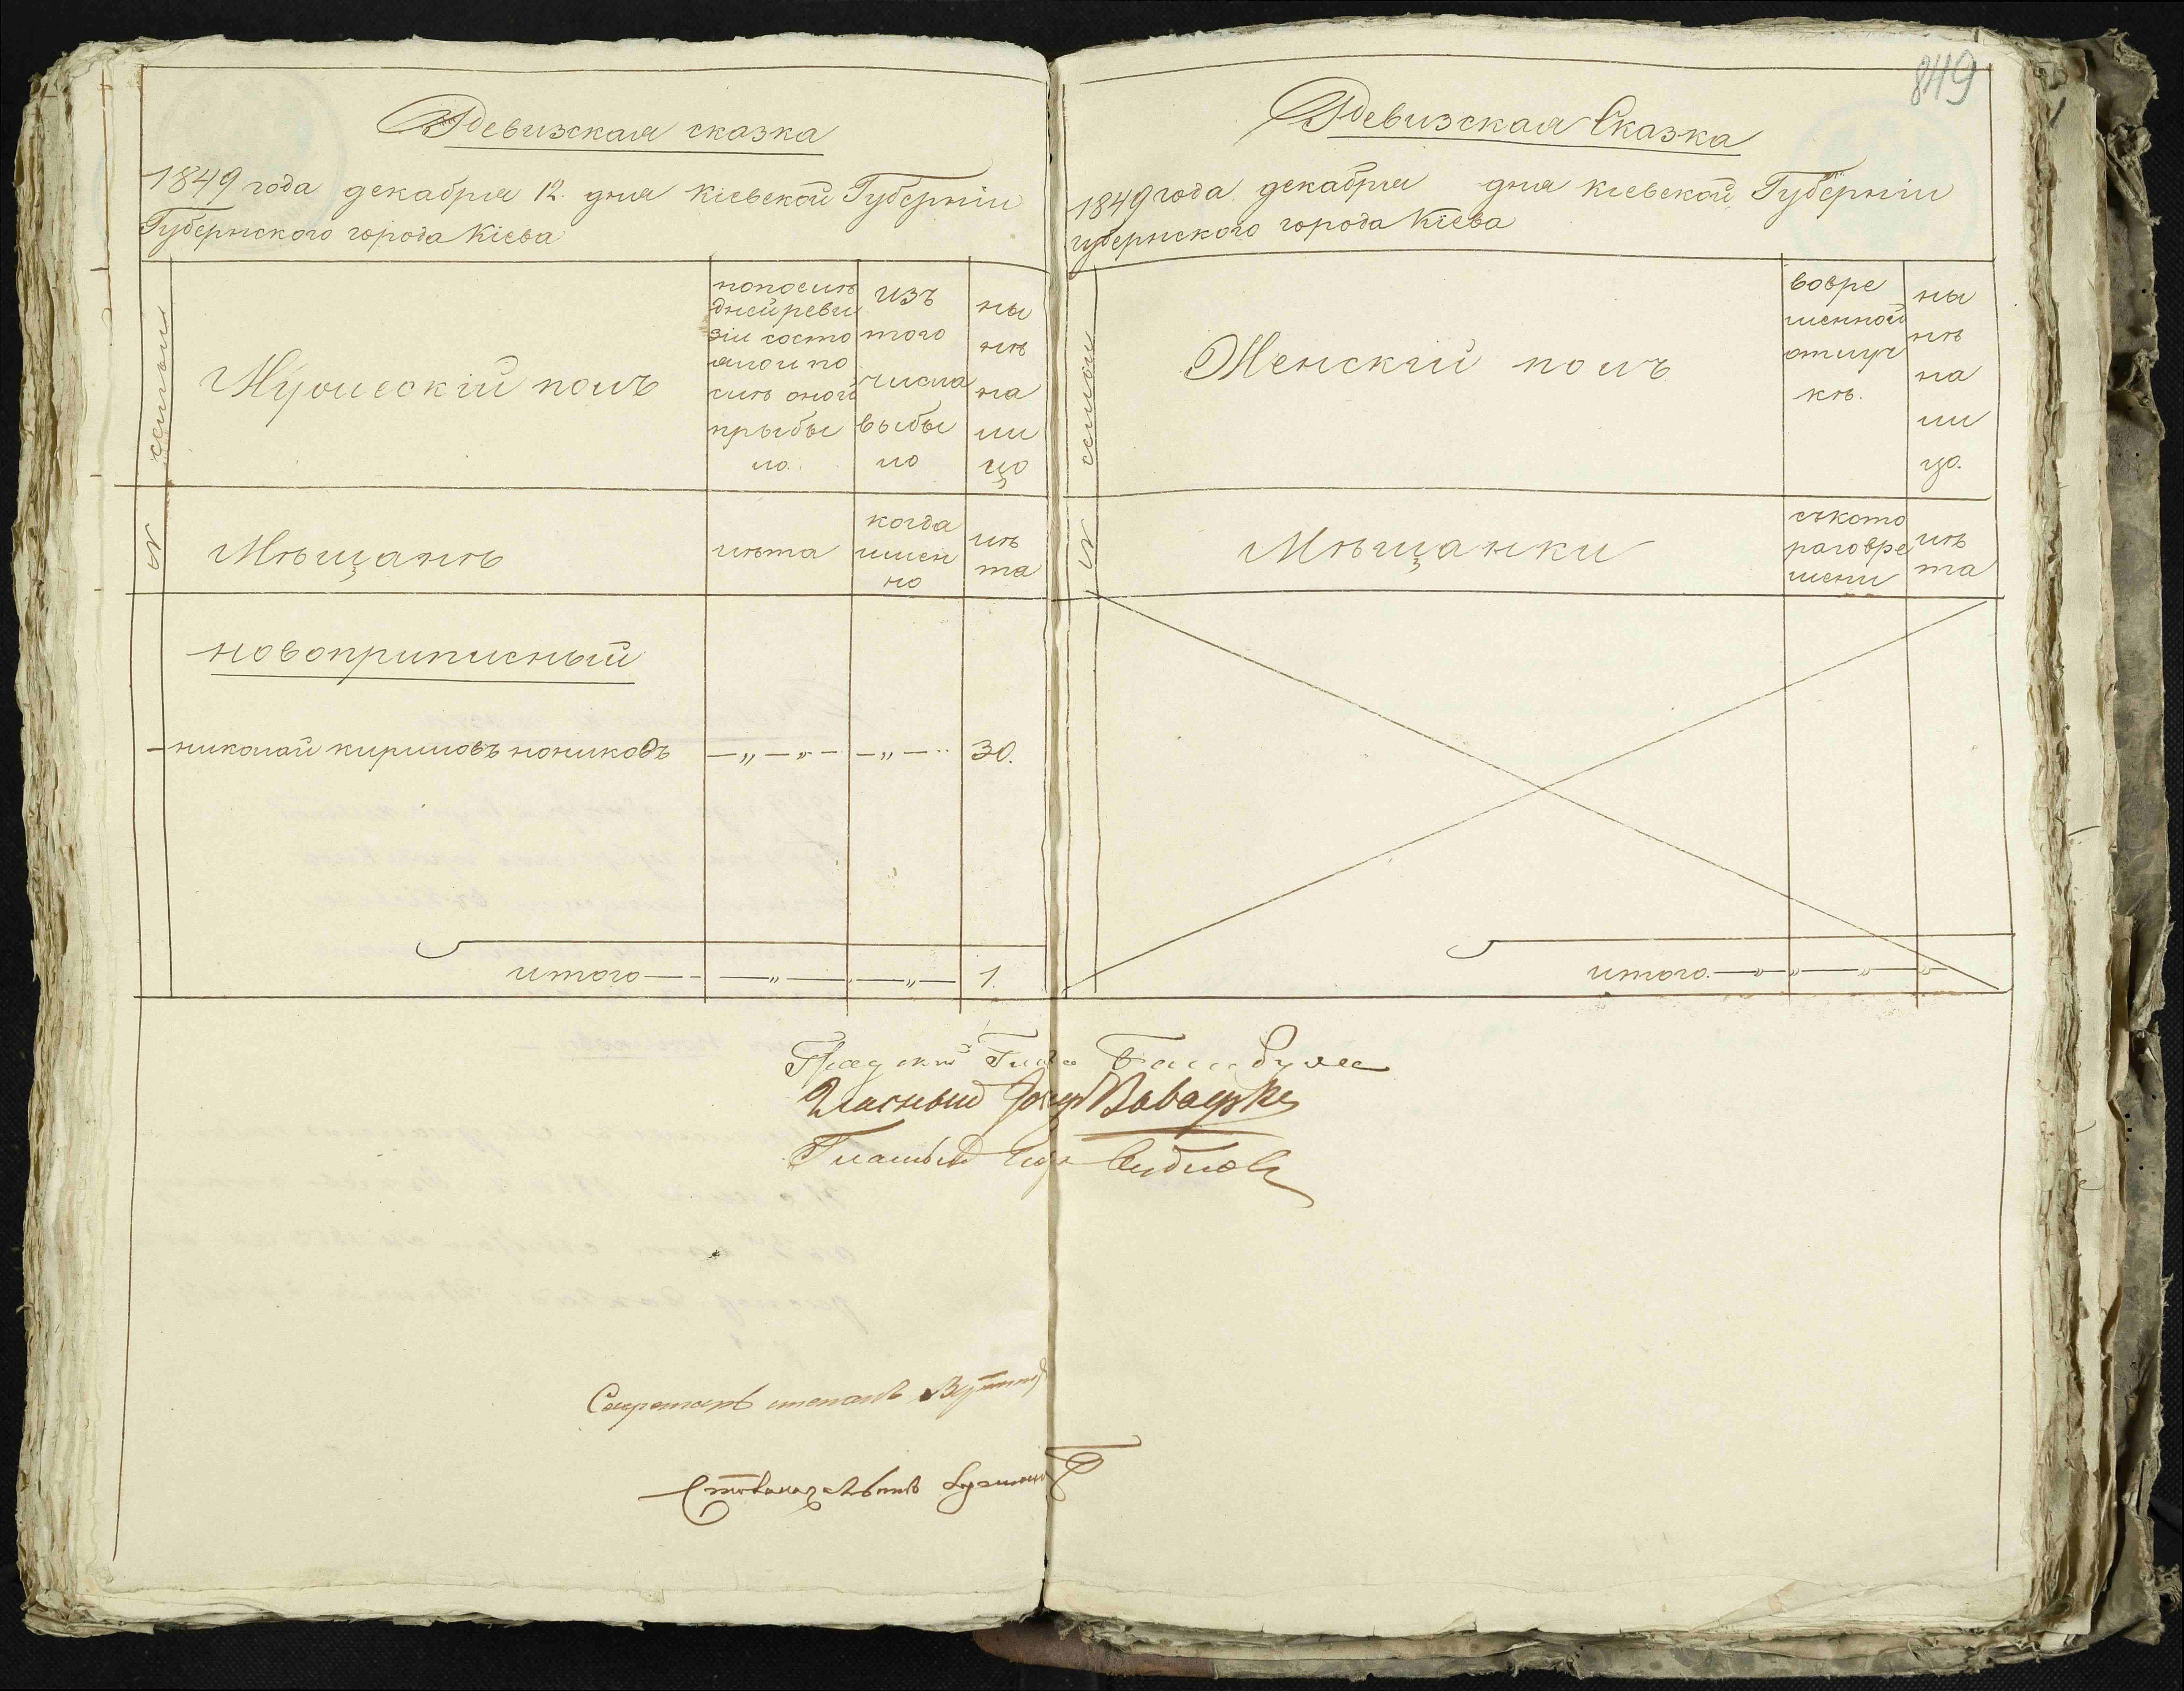 Ревизская сказка
1849 года декабря 12. дня Кіевской Губерніи
Губернского города Кіева
№ семьи
Мужескій полъ
попослѣ
днейреви
зіи состо
ялои по
слѣ оной
прыбы
ло.
изъ
того
числа
выбы
ло
ны
нѣ
на
ли
цо
Мѣщанъ
лѣта
когда
имен
но
лѣ
та
новоприписный
николай кириловъ
30.
итого
1.
849
Ревизская Сказка
1849 года декабря дня киевской Губерніи
губернского города Кіева
№ семьи
Женскій полъ
вовре
менной
отлуч
кѣ.
ны
нѣ
на
ли
цо.
Мѣщанки
ското
раговре
мени
лѣ
та
итого.
Градскій Глава
Гласный
Гласный
Секретарь
Столоначальникъ